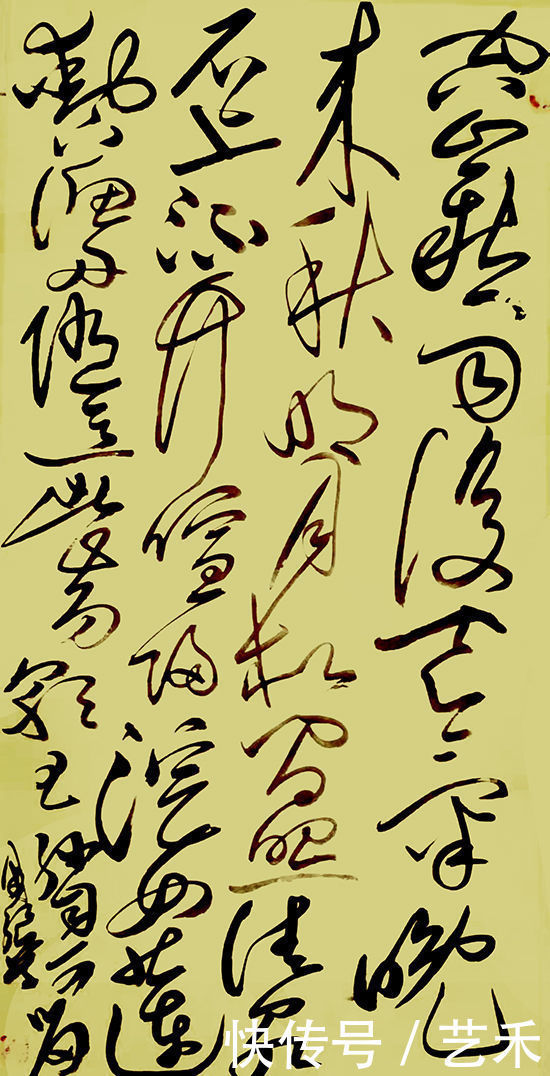 空山新雨後天氣晚
来秋明月松间照清泉
石上流竹喧归浣女莲
動下渔舟随意春芳歇王孫自可留
快传号 / 艺禾